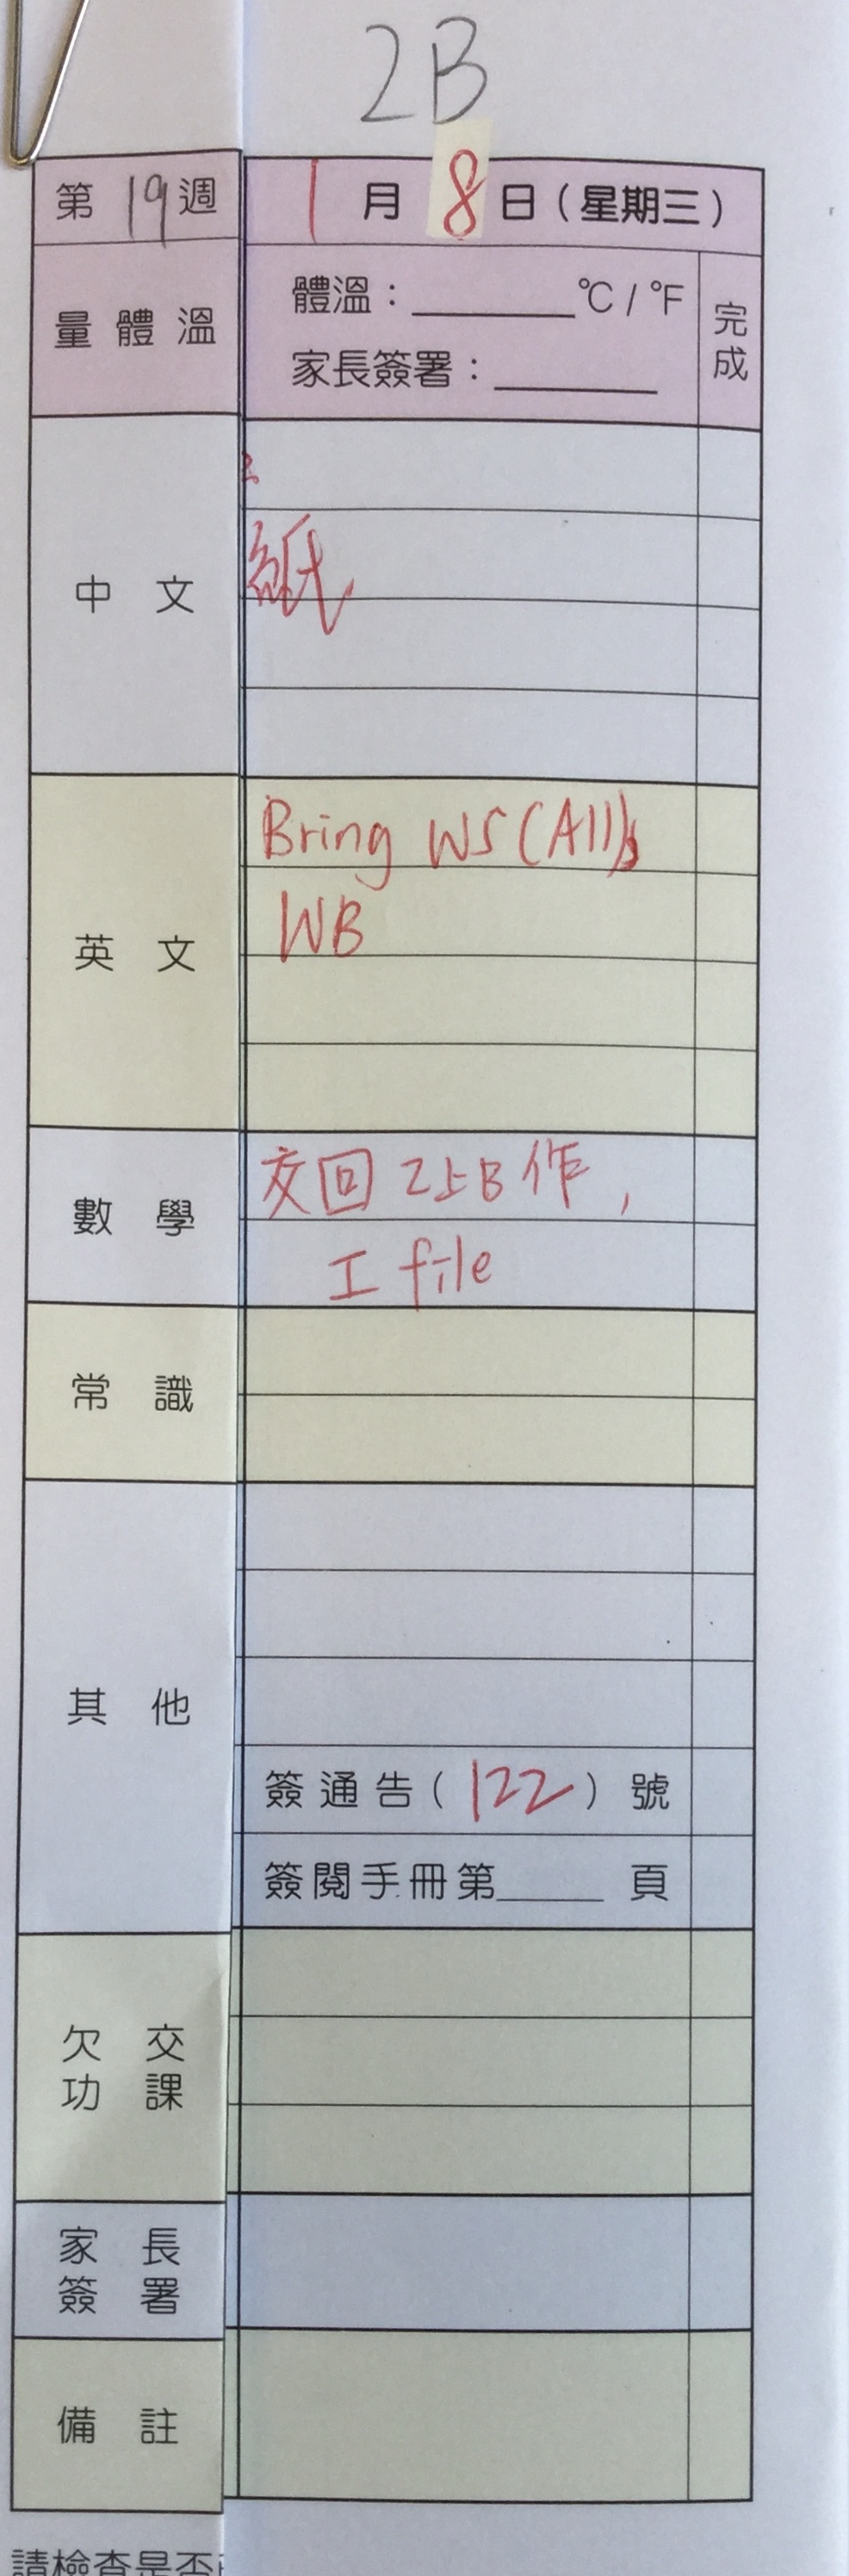 2B
第19週 1月8日(星期三)
量體溫 體溫:______°C / °F 完成
家長簽署:______
中文
紙
英文 Bring WS (All),
WB
數學 交回2上B作,
I file
常識
其他
簽通告(122)號
簽閱手冊第____頁
欠交
功課
家長
簽署
備註
請檢查是否